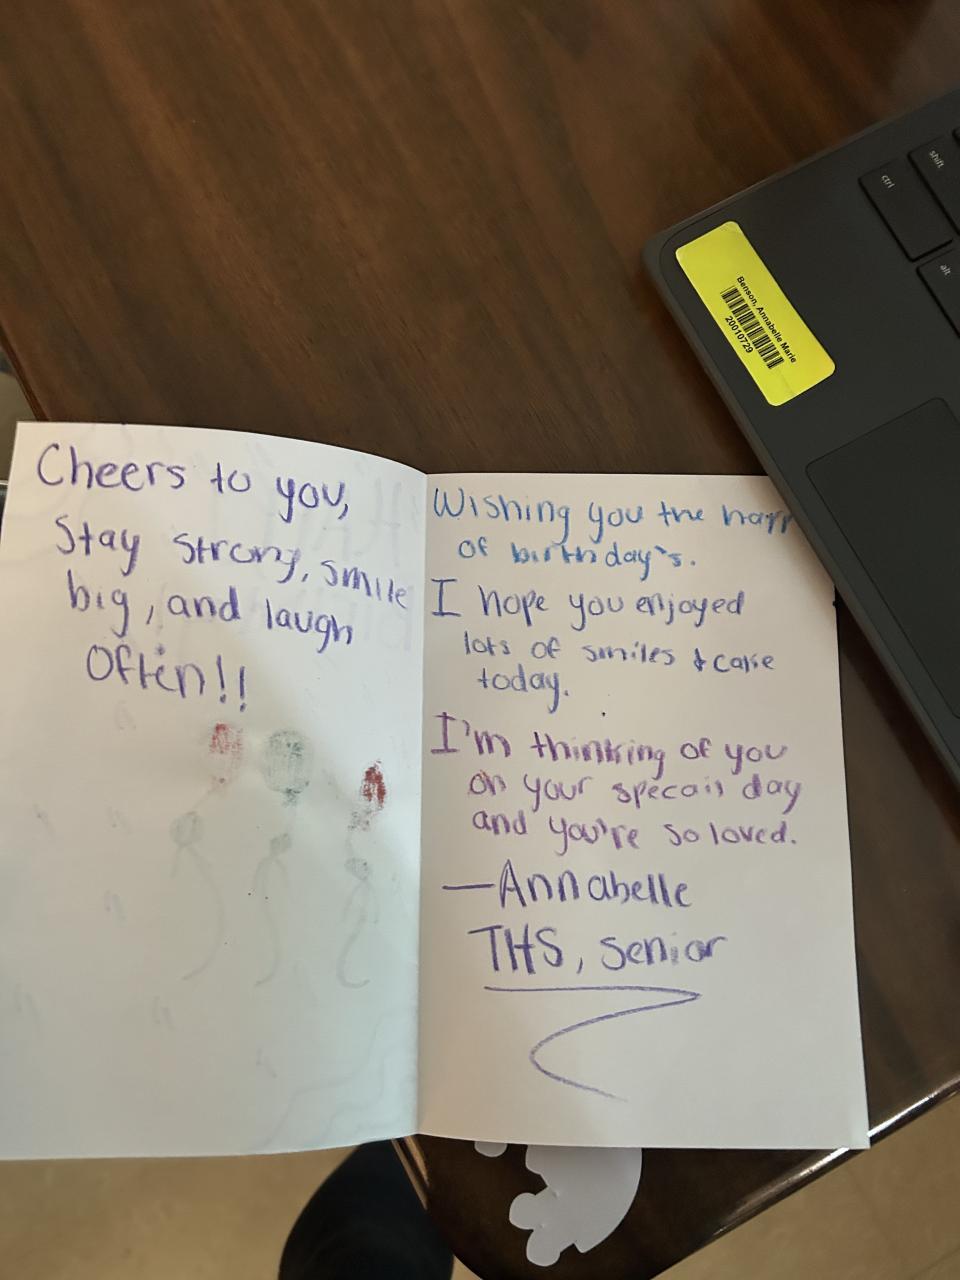 Cheers to you,
Stay strong, smile
big, and laugh
Often!!
Wishing you the happ
of birthday's.
I hope you enjoyed
lots of smiles & cake
today.
I'm thinking of you
on your specail day
and you're so loved.
—Annabelle
THS, senior
Benson, Annabelle Marie
20010729
ctrl
shift
alt